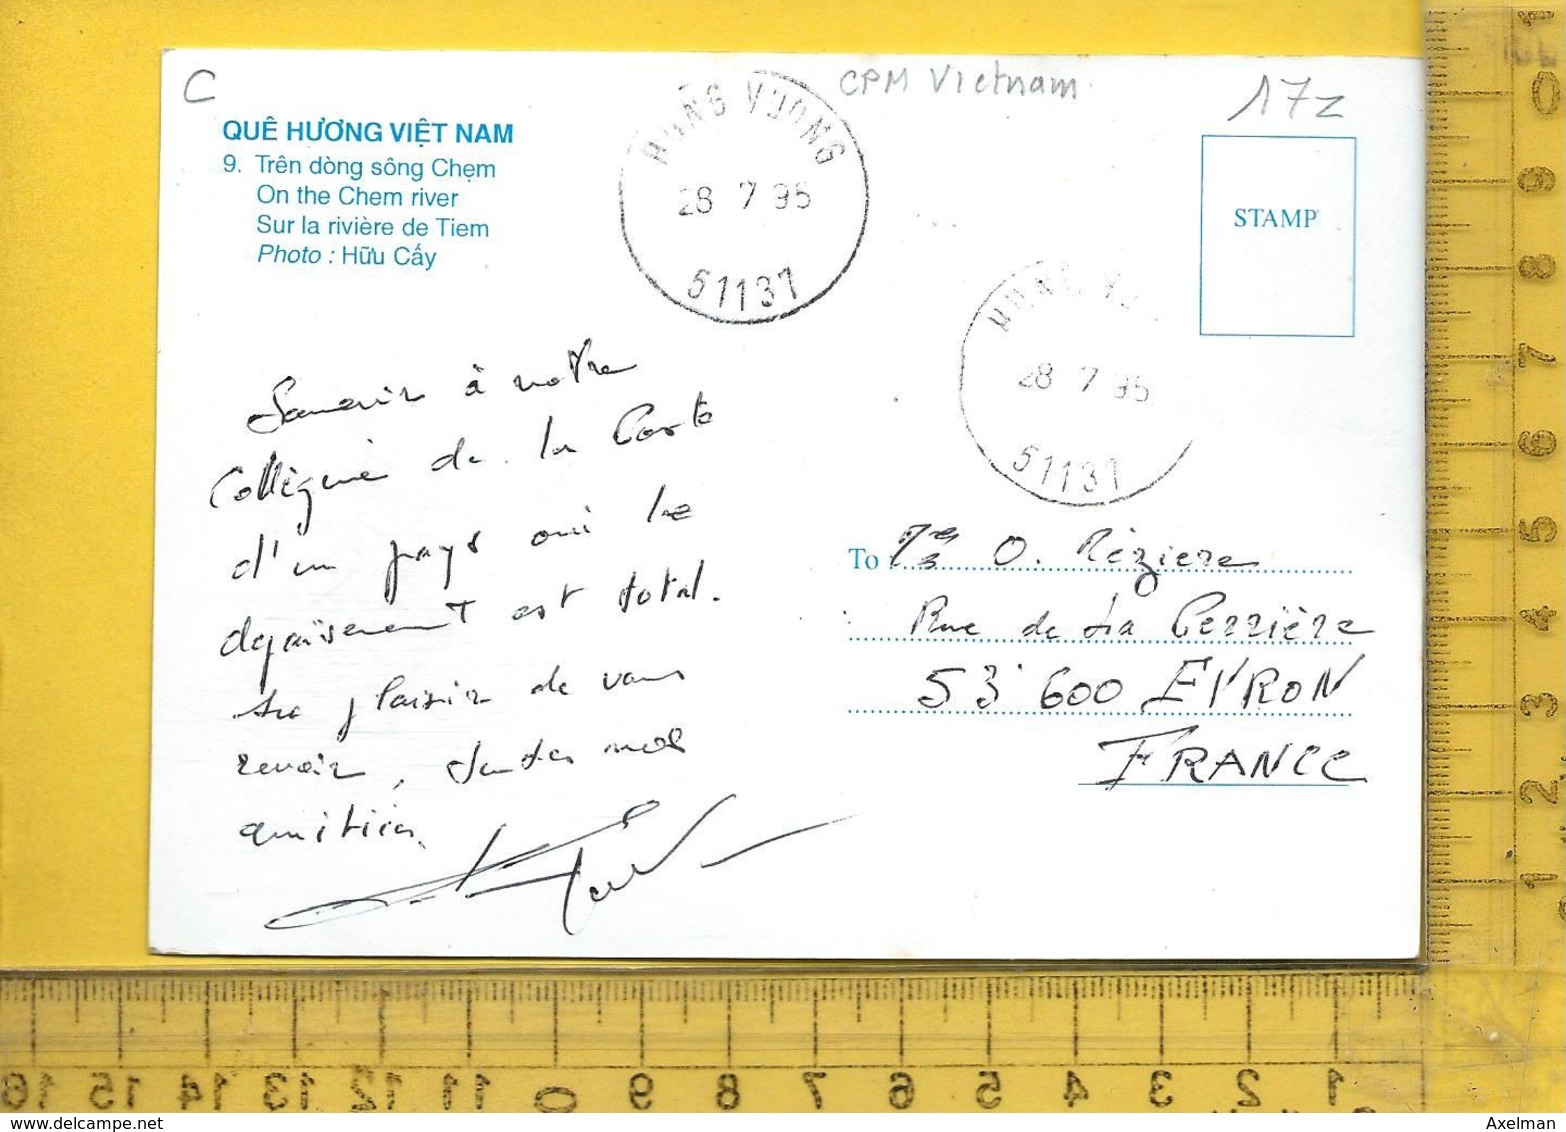 C
CPM Vietnam
17z
QUÊ HƯƠNG VIỆT NAM
9. Trên dòng sông Chẹm
On the Chem river
Sur la rivière de Tiem
Photo : Hữu Cấy
HUNG VUONG
28 7 95
51137
STAMP
HUNG VU
28 7 95
51137
Souvenir à notre
Collègue de la Poste
d'un pays où le
depaïsement est total.
Au plaisir de vous
revoir, toutes mes
amitiés.
To O. Rézière
Rue de La Perrière
53 600 EVRON
FRANCE
0 9 8 7 6 5 4 3 2 1
16 15 14 13 12 11 0 9 8 7 6 5 4 3 2 1
www.delcampe.net
Axelman